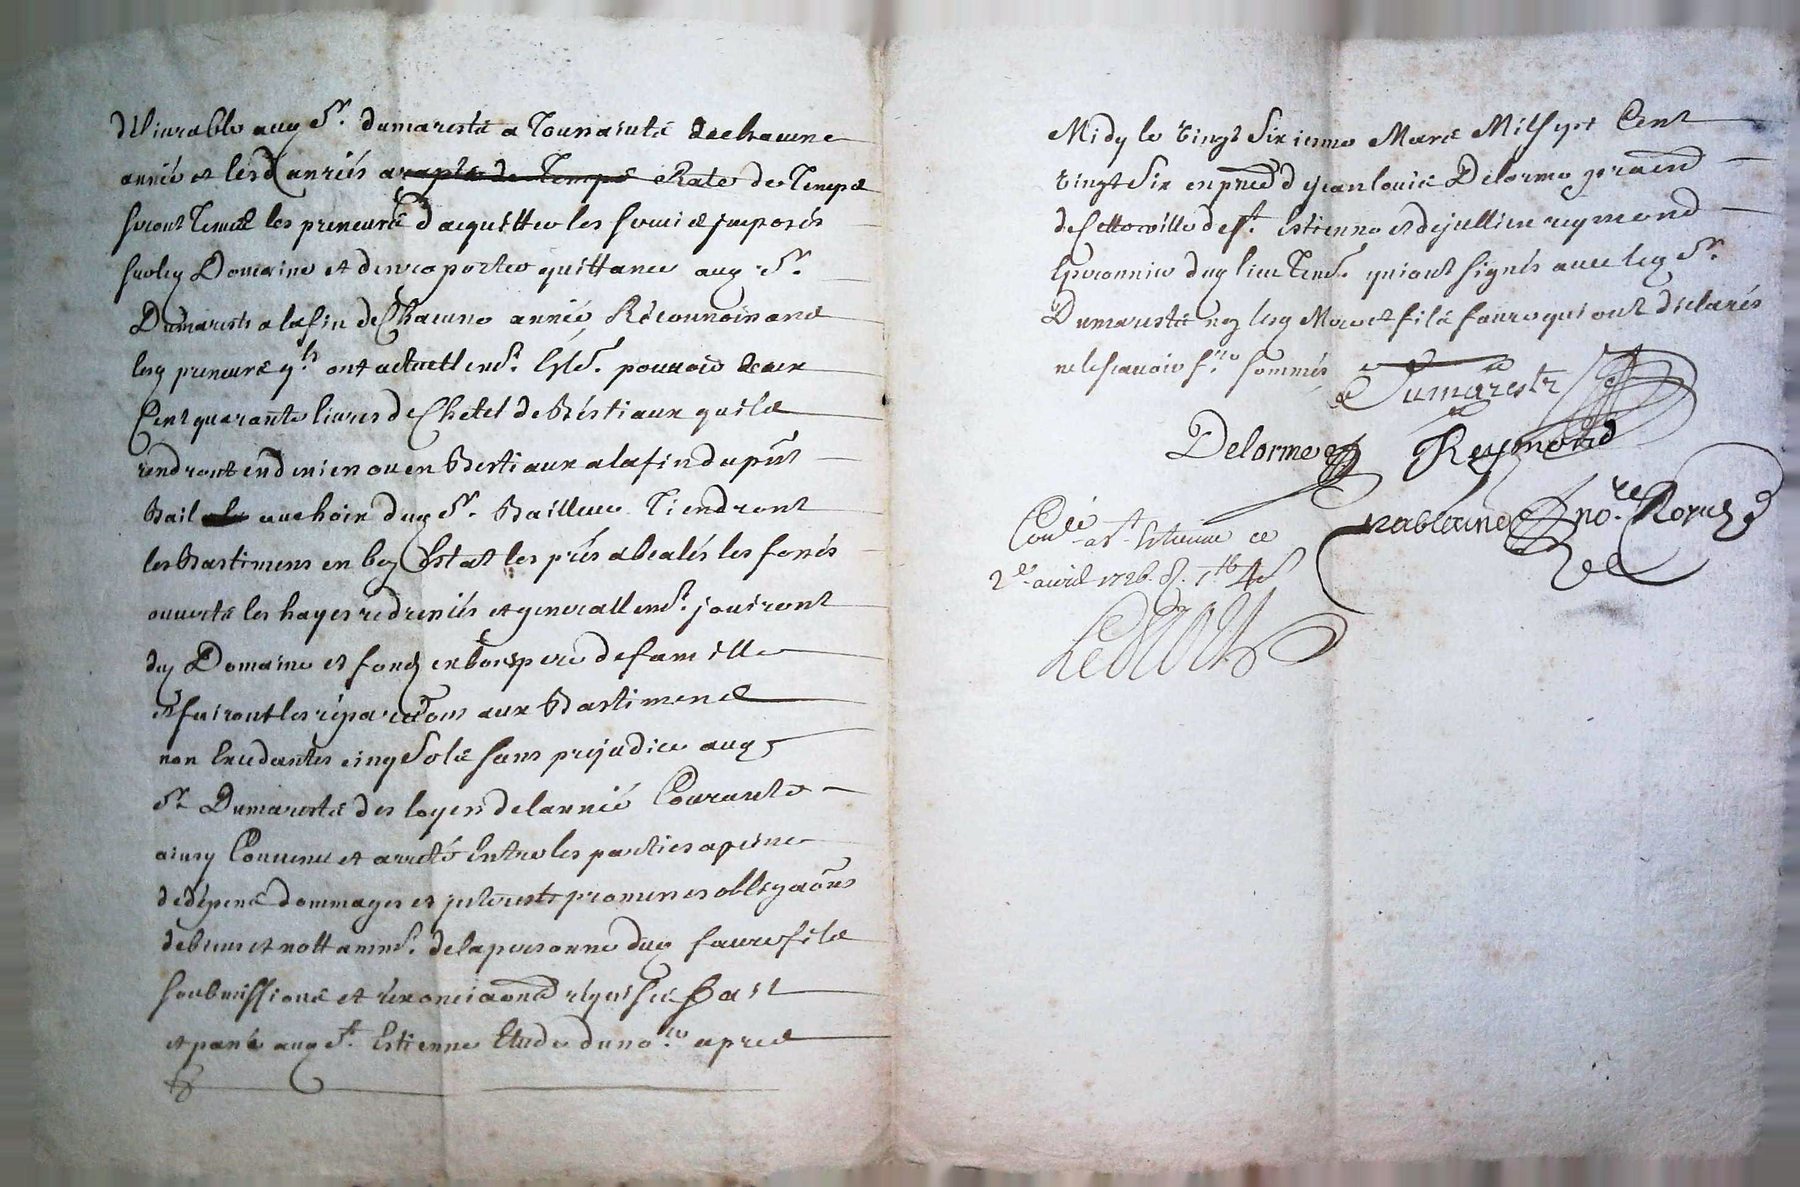 délivrable aud Sr. Dumarestz a Tounaintz de chacune
année et lesd danrées a rapte de Temps Rate de Temps
seront Tenus les preneurs d'acquitter les sommes imposés
sur led Domaine et d'en raporter quittance aud Sr.
Dumarestz a la fin de Chacune année Réconnoinans
lesd preneurs qls ont actuellemt. pouvoir deux
Cent quarante livres de Chetel de Béstiaux quils
rendront en denier ou en Bestiaux a la fin du pnt
Bail au choix dud Sr. Bailleur Tiendront
les Bastimens en bon Estat les prés abealés les fonds
ouverts les hayes redreniés et generallemt. jouiront
dud Domaine et fonds en bons pere de famille
et fairont les réparaons aux Bastimens
non Excedantes cinq Sols sans prejudice aud
Sr. Dumarestz des loyers de l'année Courante
ainsy Convenu et arreté Entre les parties a peine
de dépens dommages et interests promenes obligaons
de biens et nottammt. de la personne dud faure fils
soubmissions et renonciaons réquises Fait
et pané aud St. Estienne Etude du nore apres
Midy le vingt Sixieme Mars Mil Sept Cent
vingt Six en pnce d jean louis Delorme
de cette ville de St. Estienne et de jullien reymond
dud lieu Temt. qui ont signés avec led Sr.
Dumarestz non lesd Mere et fils faure qui ont déclarés
ne le scavoir fre sommés Dumarestz
Delorme Reymond
nore Royal
Conlé a St Etienne ce
2e avril 1726.